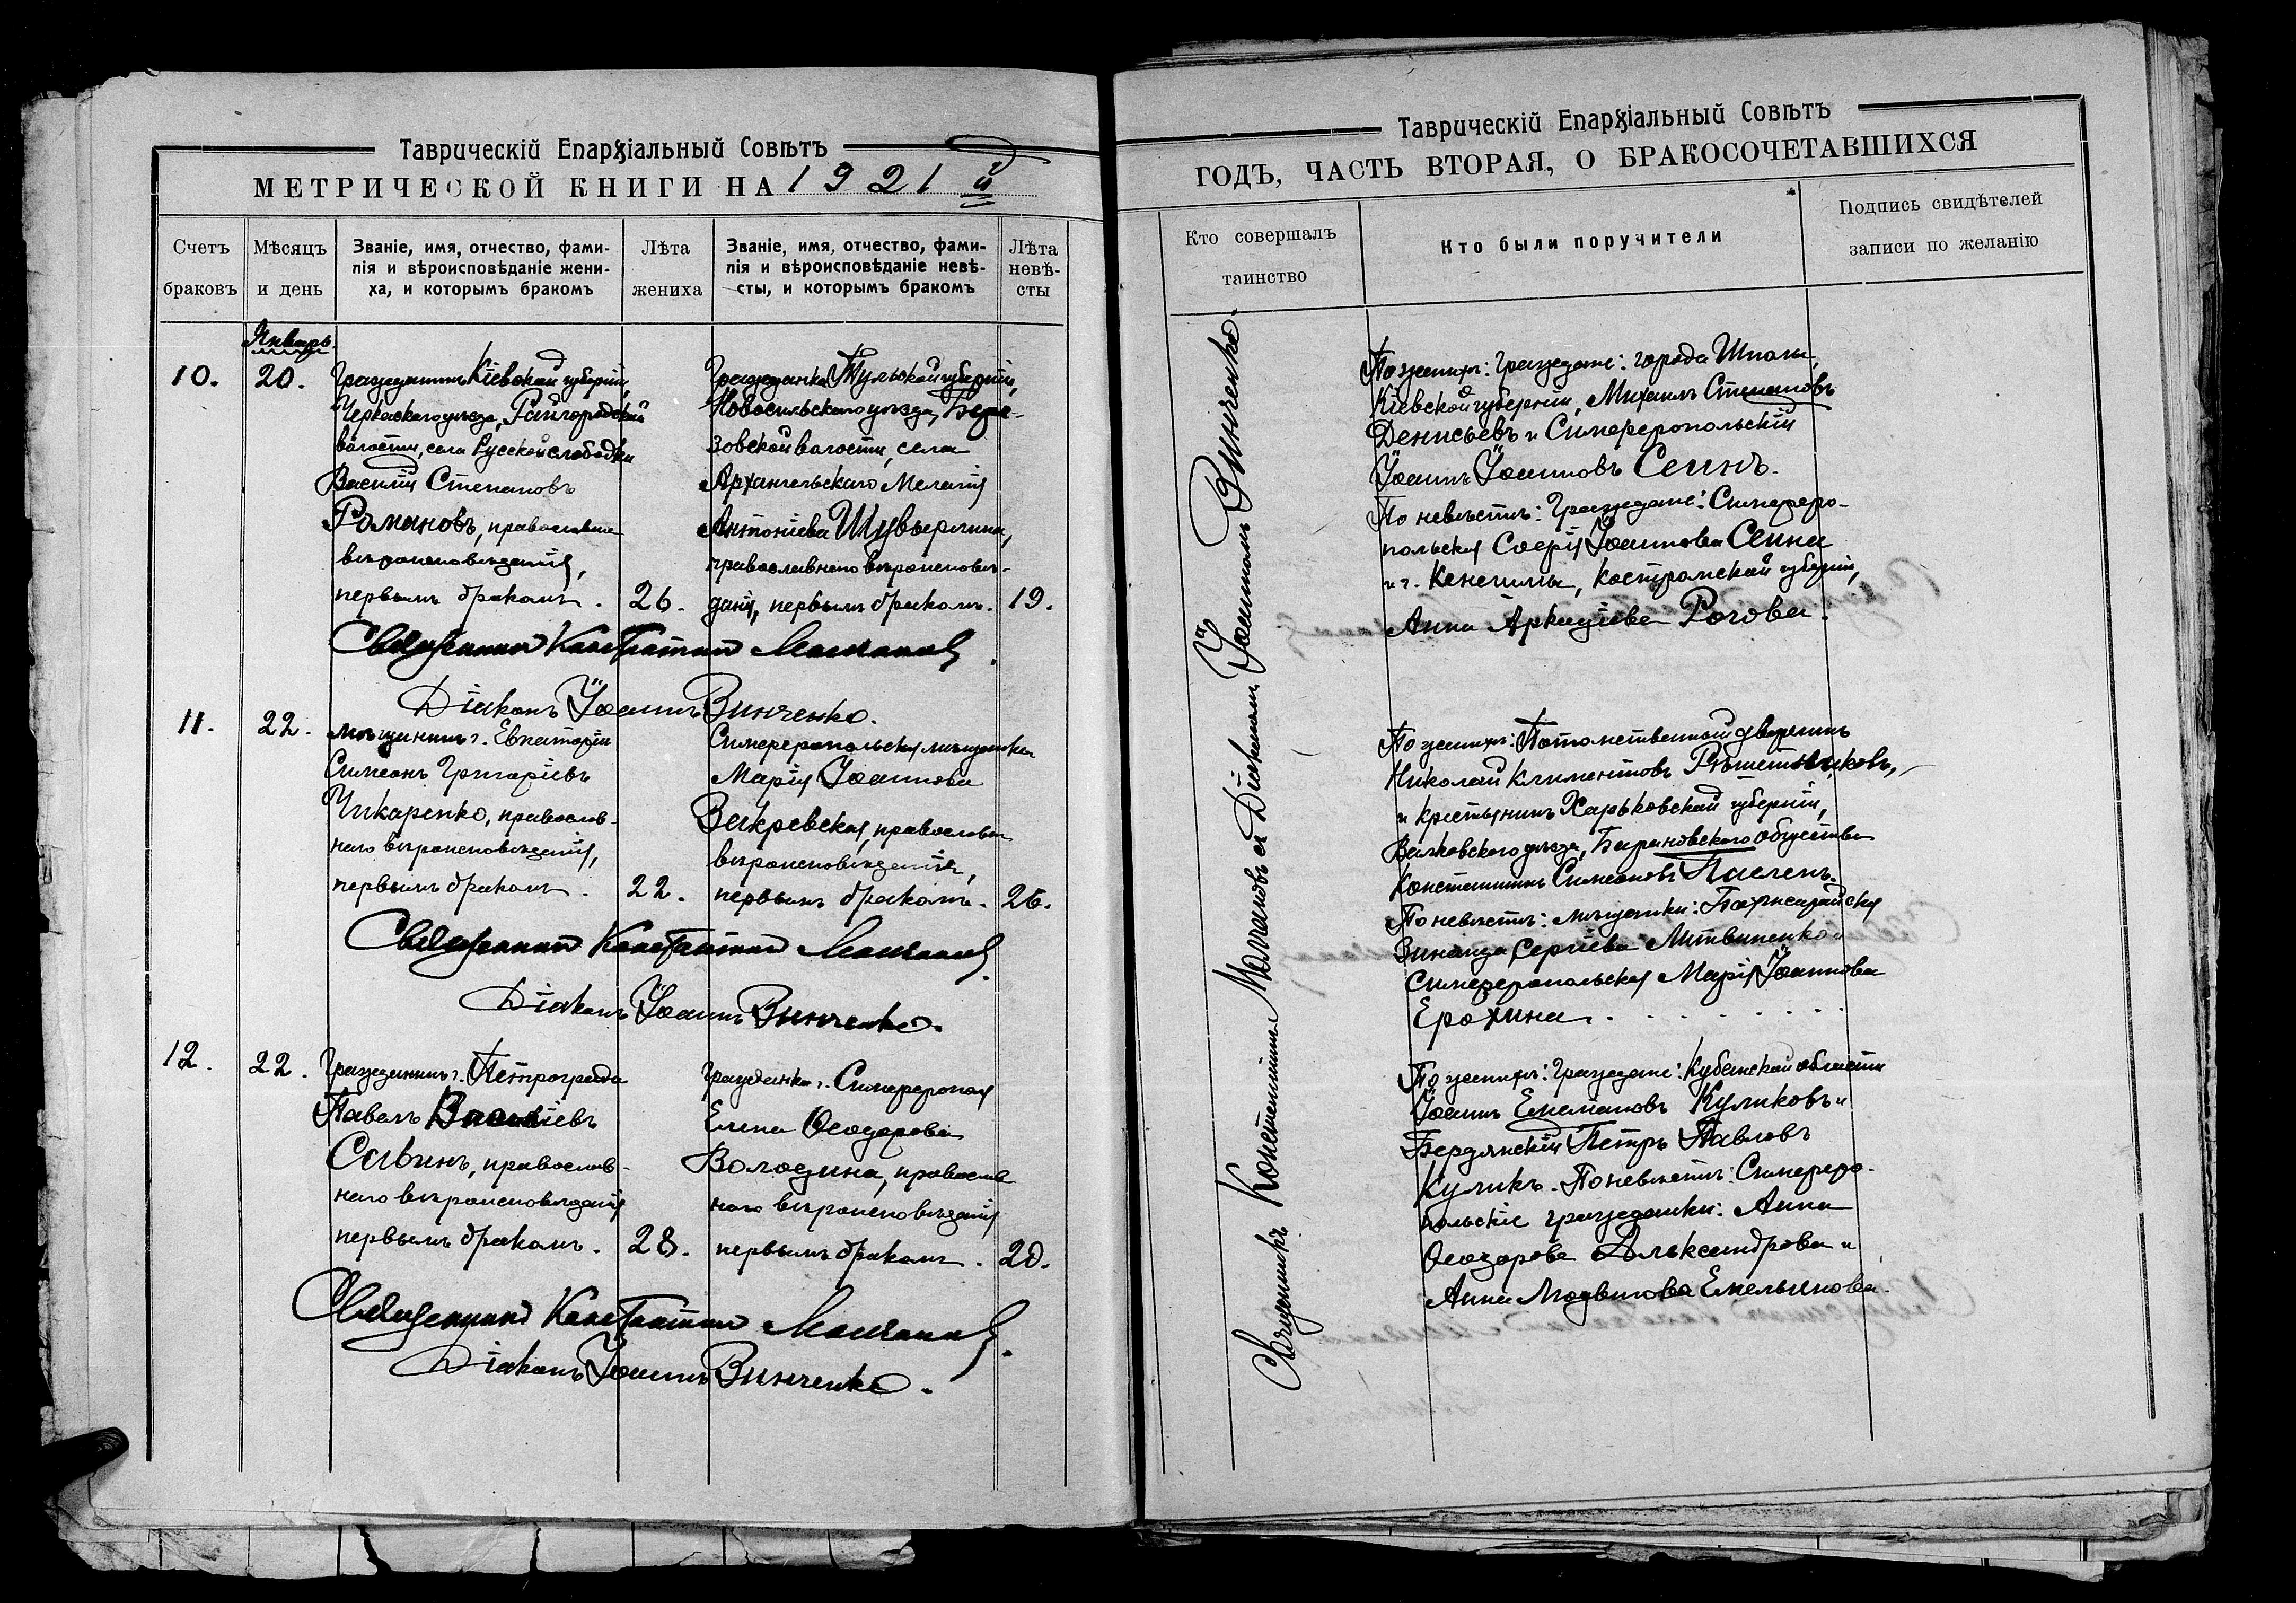 Таврическій Епархіальный Совѣтъ
МЕТРИЧЕСКОЙ КНИГИ НА 1921 й
Счетъ браковъ
Мѣсяцъ и день
Званіе, имя, отчество, фами-
лія и вѣроисповѣданіе жени-
ха, и которымъ бракомъ
Лѣта жениха
Званіе, имя, отчество, фами-
лія и вѣроисповѣданіе невѣ-
сты, и которымъ бракомъ
Лѣта
невѣ-
сты
Январь.
10.
20.
Гражданинъ Кіевской губерніи,
Черкасскаго уѣзда, Райгородской
волости, села Русской слободки
Василій Степановъ
Романовъ, православн
вѣроисповѣданія,
первымъ бракомъ.
26.
Гражданка Тульской губерніи,
Новосильскаго уѣзда, Бере-
зовской волости, села
Архангельскаго Меланія
Антоніева
православнаго вѣроисповѣ-
данія, первымъ бракомъ.
19.
Священникъ Константинъ Молчановъ.
Діаконъ Іоаннъ Винченко.
11.
22.
мѣщанинъ г. Евпаторіи
Симеонъ Григоріевъ
Чикаренко, православ-
наго вѣроисповѣданія,
первымъ бракомъ.
22.
Симферопольская мѣщанка
Марія Іоаннова
Закревская, православн
вѣроисповѣданія,
первымъ бракомъ.
26.
Священникъ Константинъ Молчановъ.
Діаконъ Іоаннъ Винченко.
12.
22.
Гражданинъ г. Петрограда
Павелъ Василіевъ
Савинъ, православ-
наго вѣроисповѣданія
первымъ бракомъ.
28.
Гражданка г. Симферополя
Елена Ѳеодорова
Володина, православ
наго вѣроисповѣданія
первымъ бракомъ.
20.
Священникъ Константинъ Молчановъ.
Діаконъ Іоаннъ Винченко.
Таврическій Епархіальный Совѣтъ
ГОДЪ, ЧАСТЬ ВТОРАЯ, О БРАКОСОЧЕТАВШИХСЯ
Кто совершалъ
таинство
Кто были поручители
Подпись свидѣтелей
записи по желанію
Священникъ Константинъ Молчановъ съ Діакономъ Іоанномъ Винченко.
По женихѣ: Граждане: города Шполы,
Кіевской губерніи, Михаилъ Степановъ
Денисьевъ и Симферопольскій
Іоаннъ Іоанновъ Сеинъ.
По невѣстѣ: Граждане: Симферо-
польская Софія Іоаннова Сеина
и г. Кинешмы, Костромской губерніи,
Анна Аркадіева Рогова.
По женихѣ: Потомственный дворянинъ
Николай Климентовъ Рѣшетниковъ,
и крестьянинъ Харьковской губерніи,
Валковскаго уѣзда, Барановскаго общества
Константинъ Симеоновъ
По невѣстѣ: мѣщанки:
Зинаида Сергіева Литвиненко и
Симферопольская Марія Іоаннова
Ерохина.
По женихѣ: Граждане: Кубанской области
Іоаннъ Емеліановъ Куликовъ и
Бердянскій Петръ Павловъ
Куликъ. По невѣстѣ: Симферо-
польскіе гражданки: Анна
Ѳеодорова Александрова и
Анна Людвигова Емельянова.